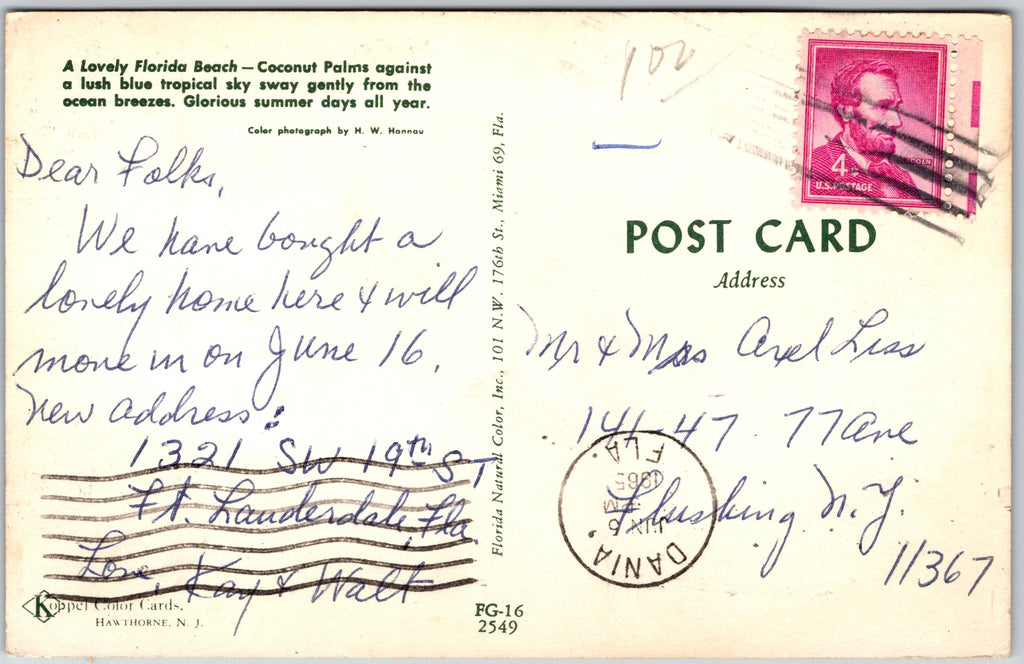 A Lovely Florida Beach — Coconut Palms against
a lush blue tropical sky sway gently from the
ocean breezes. Glorious summer days all year.
Color photograph by H. W. Hannau
Dear Folks,
We have bought a
lovely home here & will
move in on June 16.
New address:
1321 SW 19th ST
Ft. Lauderdale, Fla.
Love, Kay & Walt
Koppel Color Cards,
HAWTHORNE, N. J.
Florida Natural Color, Inc., 101 N.W. 176th St., Miami 69, Fla.
FG-16
2549
100
LINCOLN
4¢
U.S. POSTAGE
POST CARD
Address
Mr & Mrs Axel Liss
141-47 77 Ave
Flushing N.Y.
11367
DANIA.
JUN 6
1965
FLA.